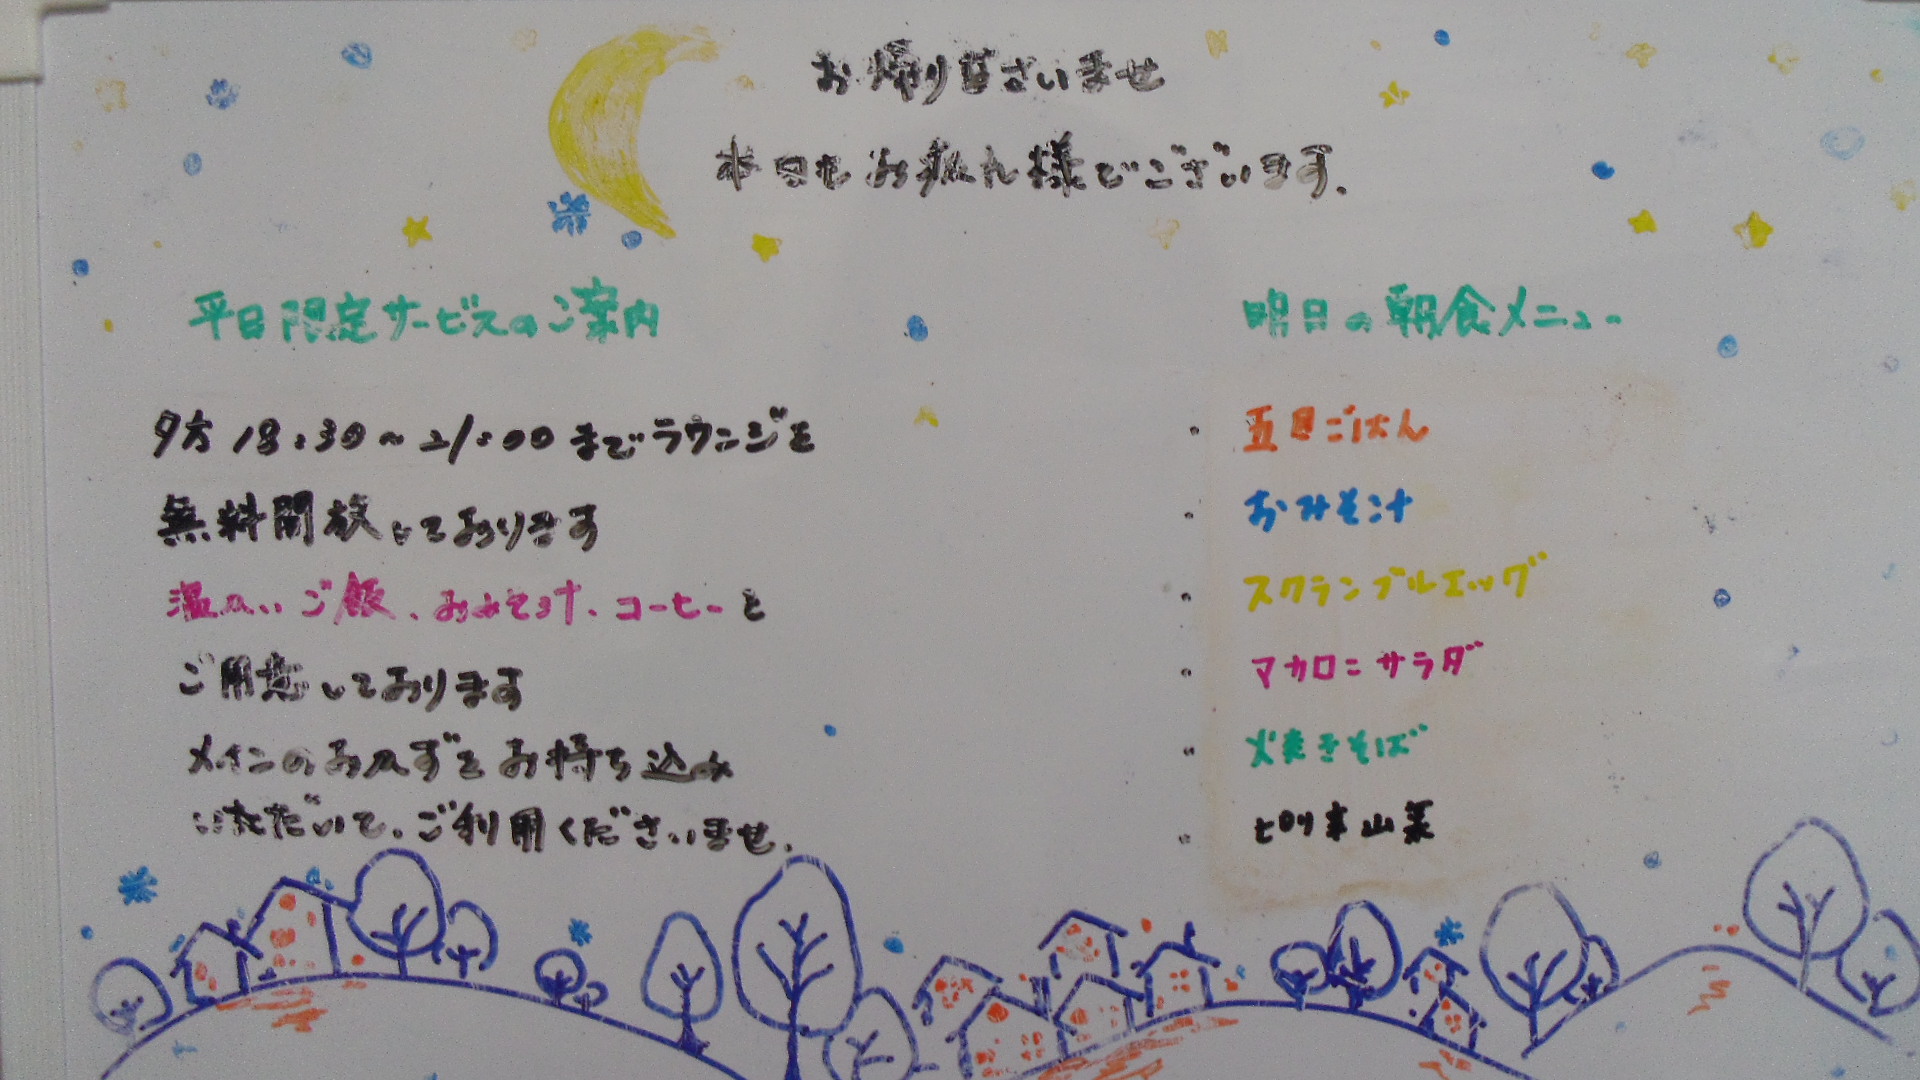 お帰りなさいませ
本日もお疲れ様でございます。
平日限定サービスのご案内
夕方18:30～21:00までラウンジを
無料開放しております
温かいご飯、おみそ汁、コーヒーを
ご用意しております
メインのおかずをお持ち込み
いただいて、ご利用くださいませ。
明日の朝食メニュー
・五目ごはん
・おみそ汁
・スクランブルエッグ
・マカロニサラダ
・焼きそば
・ピリ辛山菜